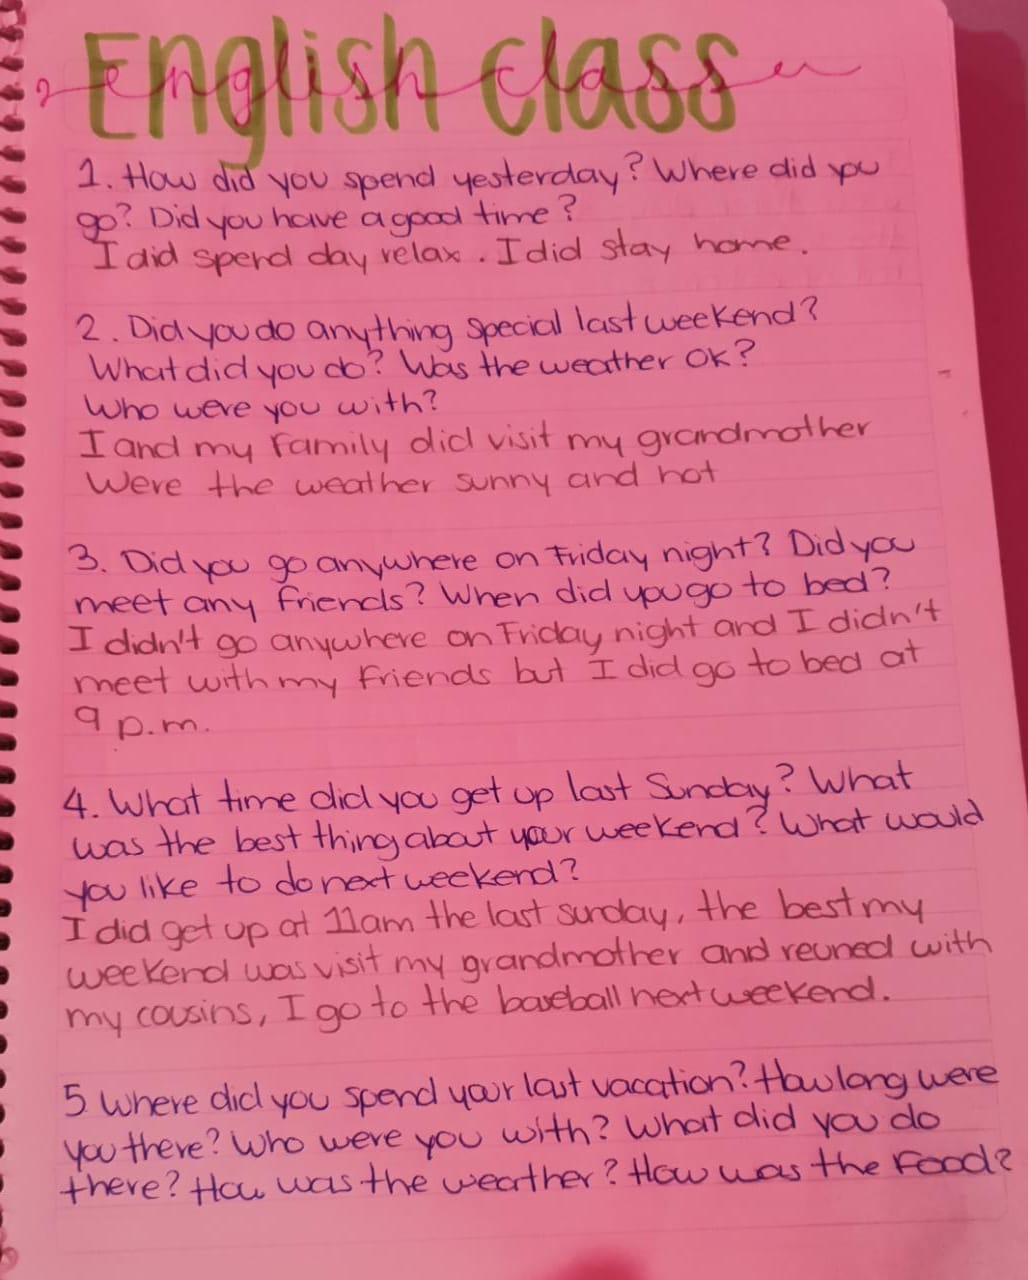 English class
1. How did you spend yesterday? Where did you
go? Did you have a good time?
I did spend day relax. I did stay home.
2. Did you do anything special last weekend?
What did you do? Was the weather OK?
Who were you with?
I and my family did visit my grandmother
Were the weather sunny and hot
3. Did you go anywhere on Friday night? Did you
meet any friends? When did you go to bed?
I didn't go anywhere on Friday night and I didn't
meet with my friends but I did go to bed at
9 p.m.
4. What time did you get up last Sunday? What
was the best thing about your weekend? What would
you like to do next weekend?
I did get up at 11am the last sunday, the best my
weekend was visit my grandmother and reuned with
my cousins, I go to the baseball next weekend.
5 Where did you spend your last vacation? How long were
you there? Who were you with? What did you do
there? How was the weather? How was the Food?